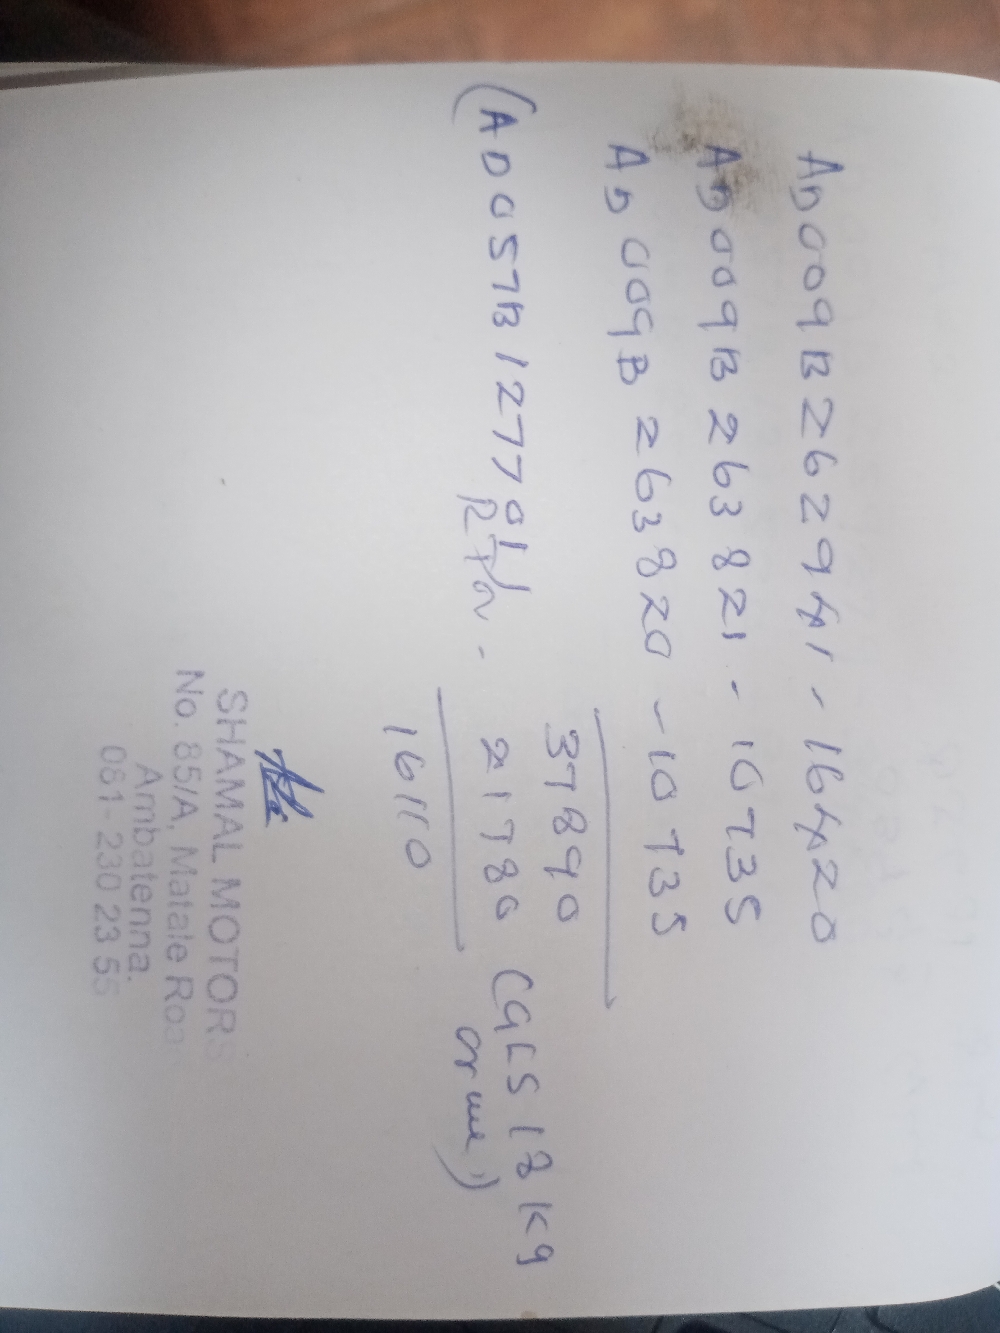 AD009B262941 - 16420
AD009B263821 - 10735
AD009B263820 - 10735
37890
(AD057B127701 - 21780 (GLS 12kg
16110
SHAMAL MOTORS
No. 85/A, Matale Roa
Ambatenna.
061-230 23 55